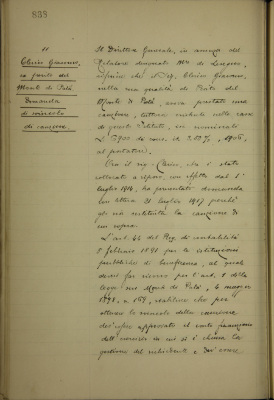 833
11
Clerico Giovanni,
ex perito del
Monte di Pietà.
Domanda
di svincolo
di cauzione
Il Direttore Generale, in assenza del
Relatore
riferisce che il Sig. Clerico Giovanni,
nella sua qualità di Perito del
Monte di Pietà, aveva prestato una
cauzione, tuttora nelle casse
di questo Istituto, in nominali
al portatore.
Ora il sig. Clerico, che è stato
collocato a riposo, con effetto dal 1°
luglio 1914, ha presentato domanda
con lettera 31 luglio 1917 perché
gli sia restituita la cauzione di
cui sopra.
L'art. 42 del Reg. di contabilità
5 febbraio 1891 per le istituzioni
pubbliche di beneficenza, al quale
devesi far ricorso per l'art. 1 della
legge sui Monti di Pietà, 4 maggio
1898, n. 169, stabilisce che per
ottenere lo svincolo della cauzione
dev'essere approvato il conto
dell'esercizio in cui si è chiusa la
gestione del